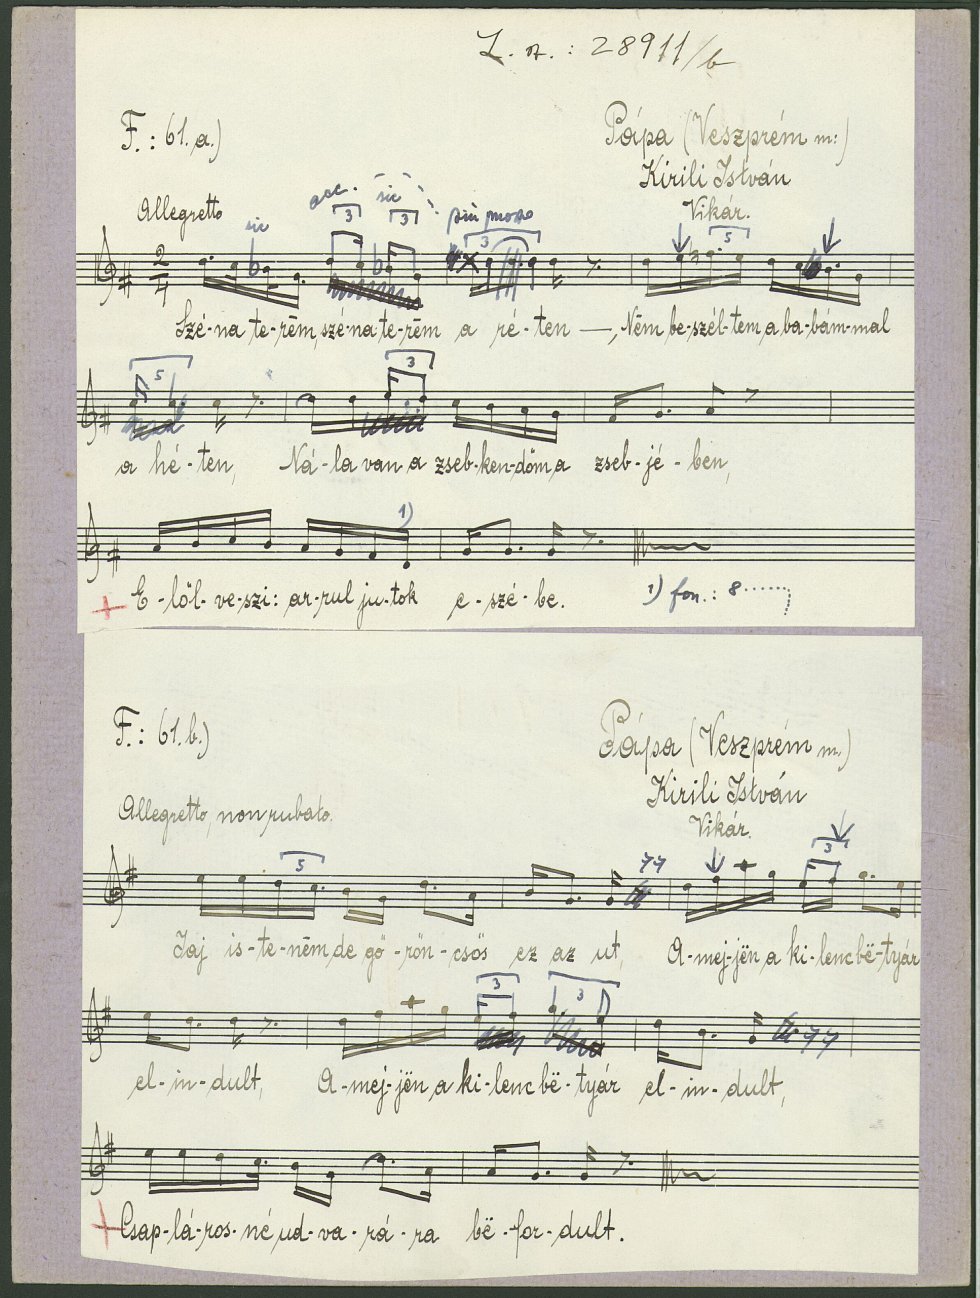 L. sz.: 28911/b
F.: 61. a.)
Pápa (Veszprém m:)
Kirili István
Vikár.
Allegretto
sic
acc.
sic
più mosso
3 3 3 5
Szé-na te-rëm, szé-na te-rëm a ré-ten —, Nëm be-szél-tem a ba-bám-mal
5 3
a hé-ten, Ná-la van a zseb-ken-dőm, a zseb-jé-ben,
1)
+ E-lől-ve-szi: ar-rul ju-tok e-szé-be.
1) fon.: 8
F.: 61. b.)
Pápa (Veszprém m.)
Kirili István
Vikár.
Allegretto, non rubato.
5 3
Jaj is-te-nëm, de gö-rön-csös ez az ut, A-mej-jën a ki-lenc bë-tyár
3 3
el-in-dult, A-mej-jën a ki-lenc bë-tyár el-in-dult,
+ Csap-lá-ros-né ud-va-rá-ra bë-for-dult.